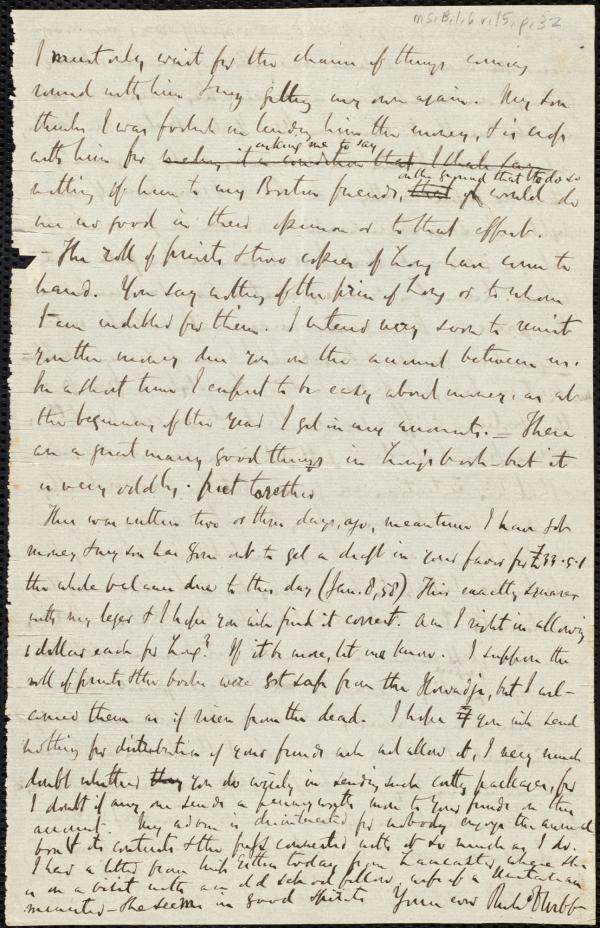 Ms.B.1.6 v.15, p.32
I must only wait for the chain of things coming
round with him & my getting my own again. My son
thinks I was foolish in lending him the money, & is cross
with him for making it a condition that I shd say
asking me to say
nothing of him to my Boston friends, that it would do
on the ground that to do so
me no good in their opinion or to that effect.
— The roll of prints & two copies of Long have come to
hand. You say nothing of the price of Long or to whom
I am indebted for them. I intend very soon to remit
you the money due you on the account between us.
In a short time I expect to be easy about money, as at
the beginning of the year I get in my accounts. — There
are a great many good things in Long's book – but it
is very oddly put together
This was written two or three days ago, meantime I have got
money & my son has gone out to get a draft in your favor for £33.5.1
the whole balance due to this day (Jan. 8, 58) This exactly squares
with my leger & I hope you will find it correct. Am I right in allowing
1 dollar each for Long? If it be more, let me know. I suppose the
roll of prints & the books were got safe from the Howadji, but I wel-
comed them as if risen from the dead. I hope if you will send
nothing for distribution if your funds will not allow it, I very much
doubt whether they you do wisely in sending such costly packages, for
I doubt if any one sends a pennyworth more to your funds on this
account. My advice is disinterested for nobody enjoys the annual
box & its contents & the fuss connected with it so much as I do.
I had a letter from Miss Estlin today from Lancaster, where she
is on a visit with an old school fellow, wife of a Unitarian
minister – She seems in good spirits Yours ever Richd D Webb